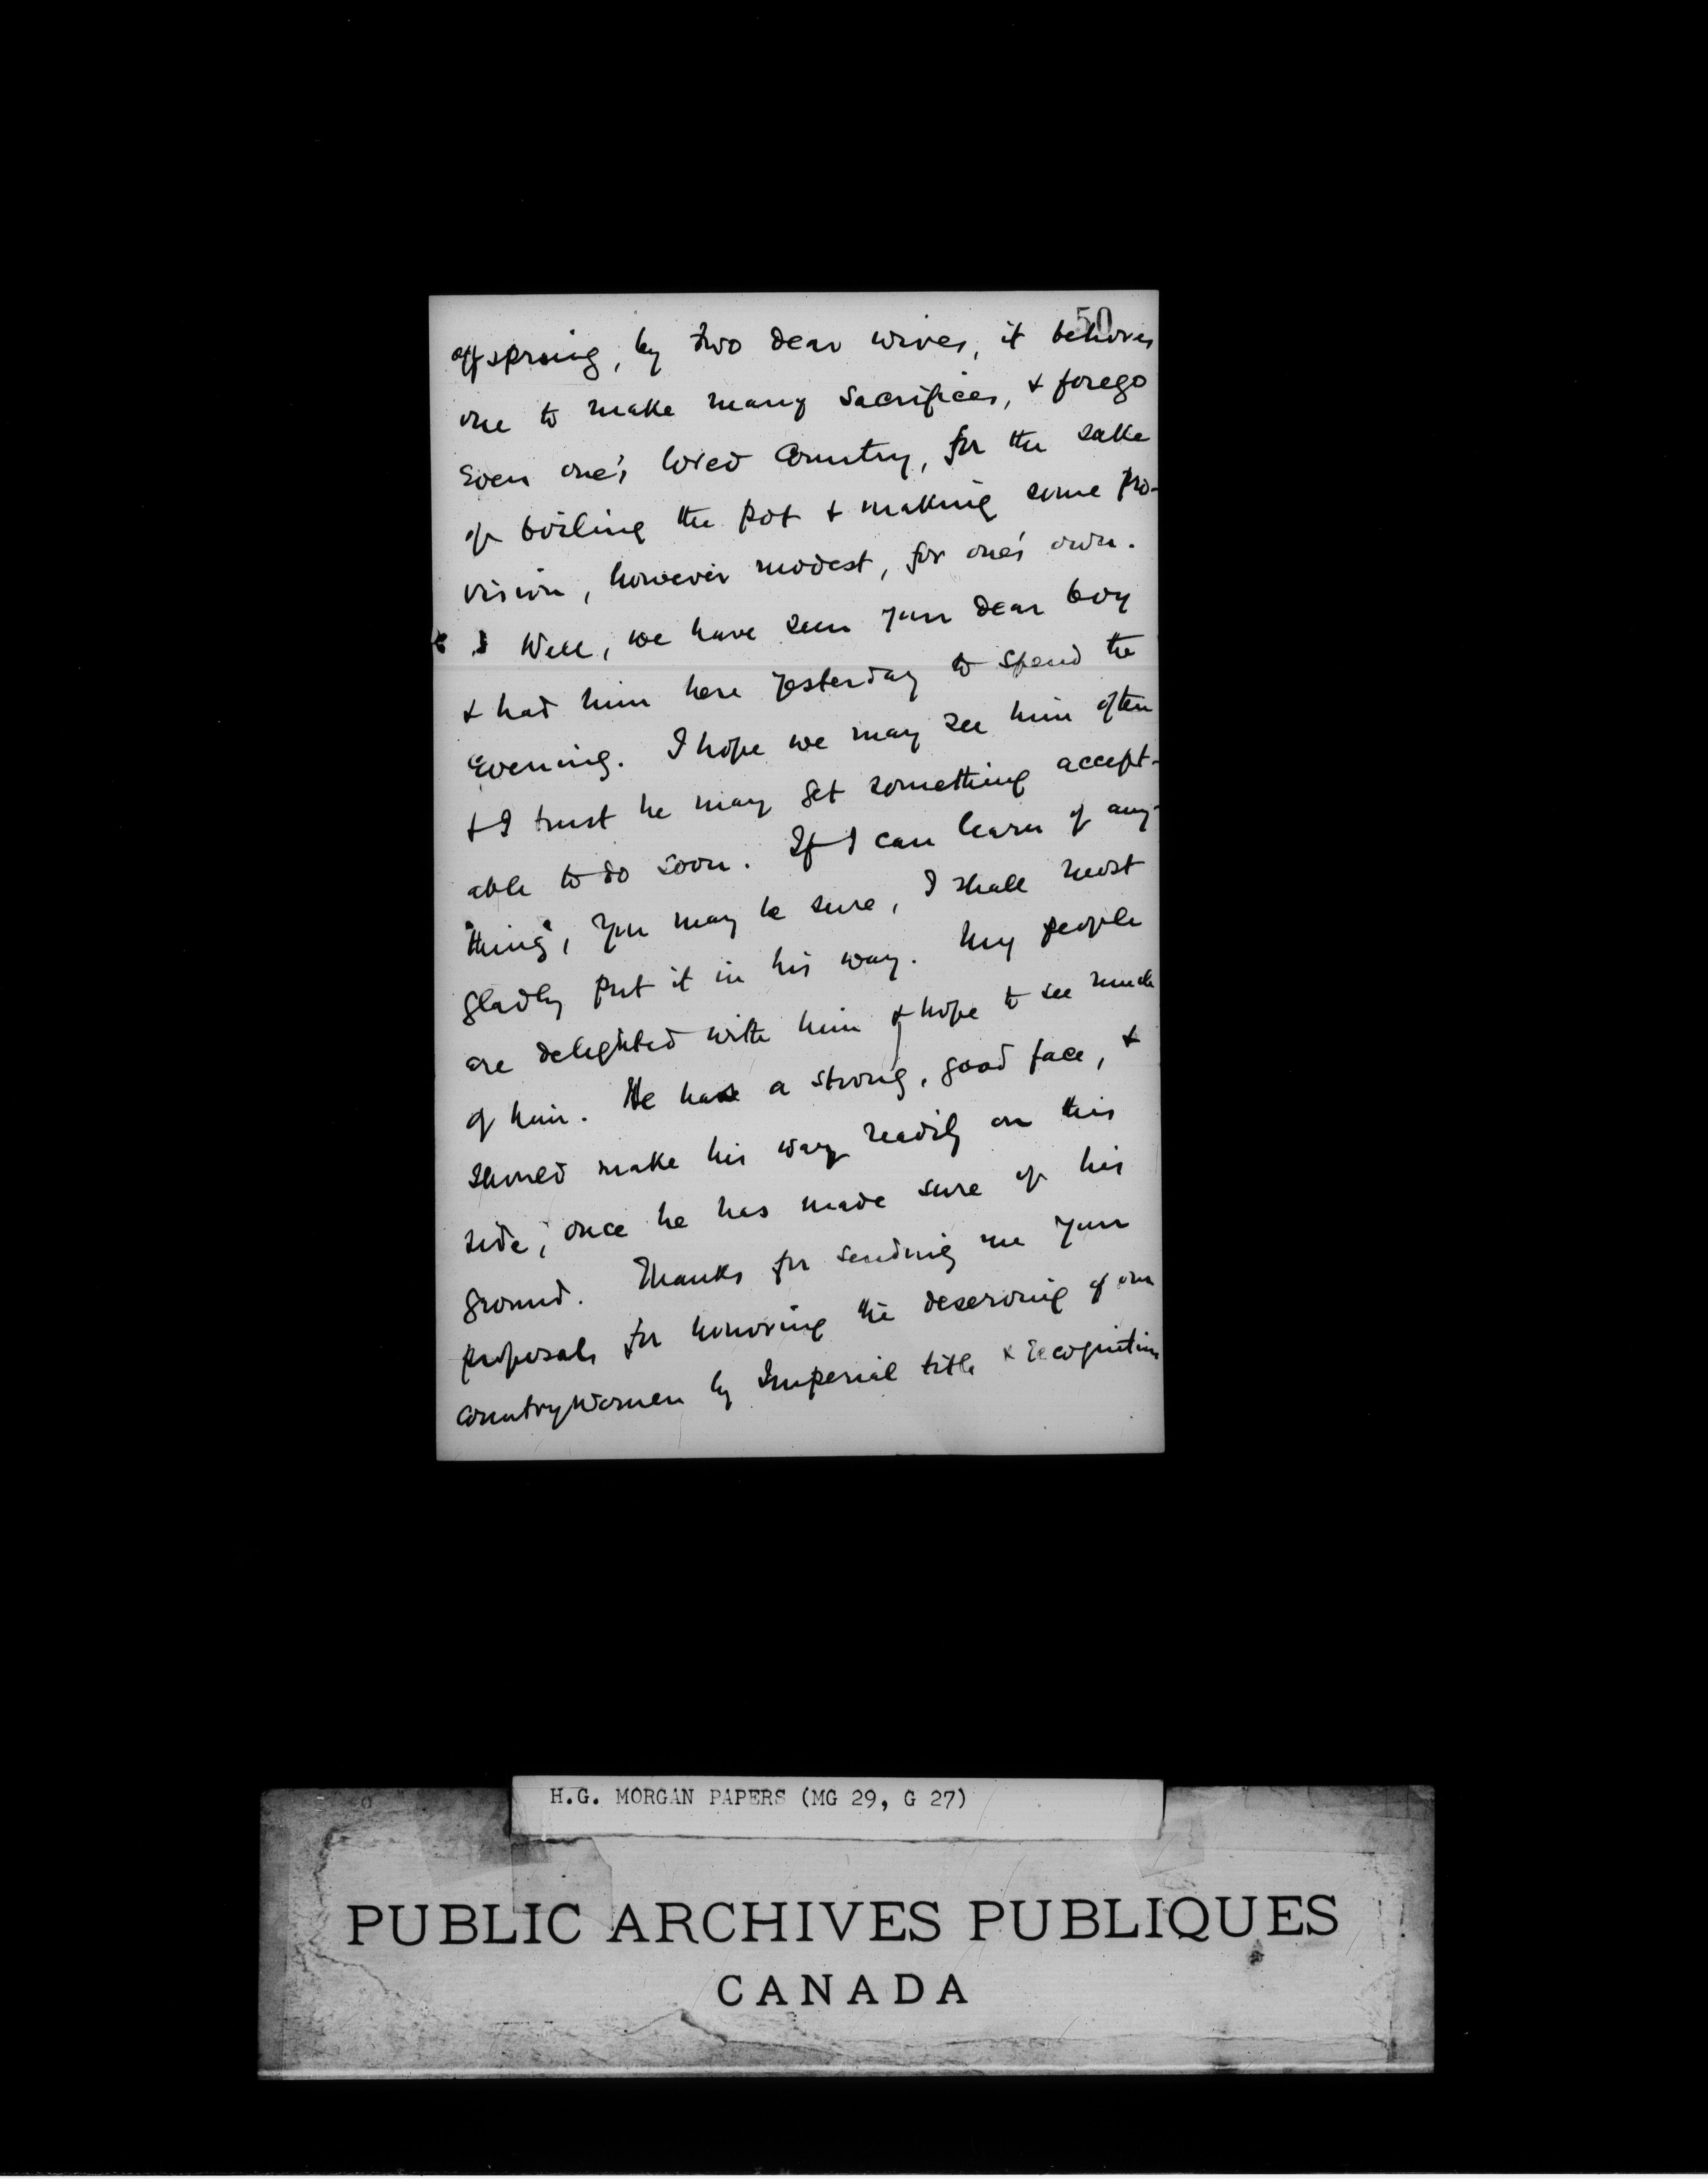 50
offspring, by two dear wives, it behoves
one to make many sacrifices, & forego
even one's loved Country, for the sake
of boiling the pot & making some pro-
vision, however modest, for one's own.
Well, we have seen your dear boy
& had him here yesterday to spend the
Evening. I hope we may see him often
& I trust he may get something accept-
able to do soon. If I can learn of any-
"thing", you may be sure, I shall most
gladly put it in his way. My people
are delighted with him & hope to see much
of him. He has a strong, good face, &
should make his way readily on this
side, once he has made sure of his
ground. Thanks for sending me your
proposals for honoring the deserving of our
Countrywomen by Imperial title & recognition
H.G. MORGAN PAPERS (MG 29, G 27)
PUBLIC ARCHIVES PUBLIQUES
CANADA